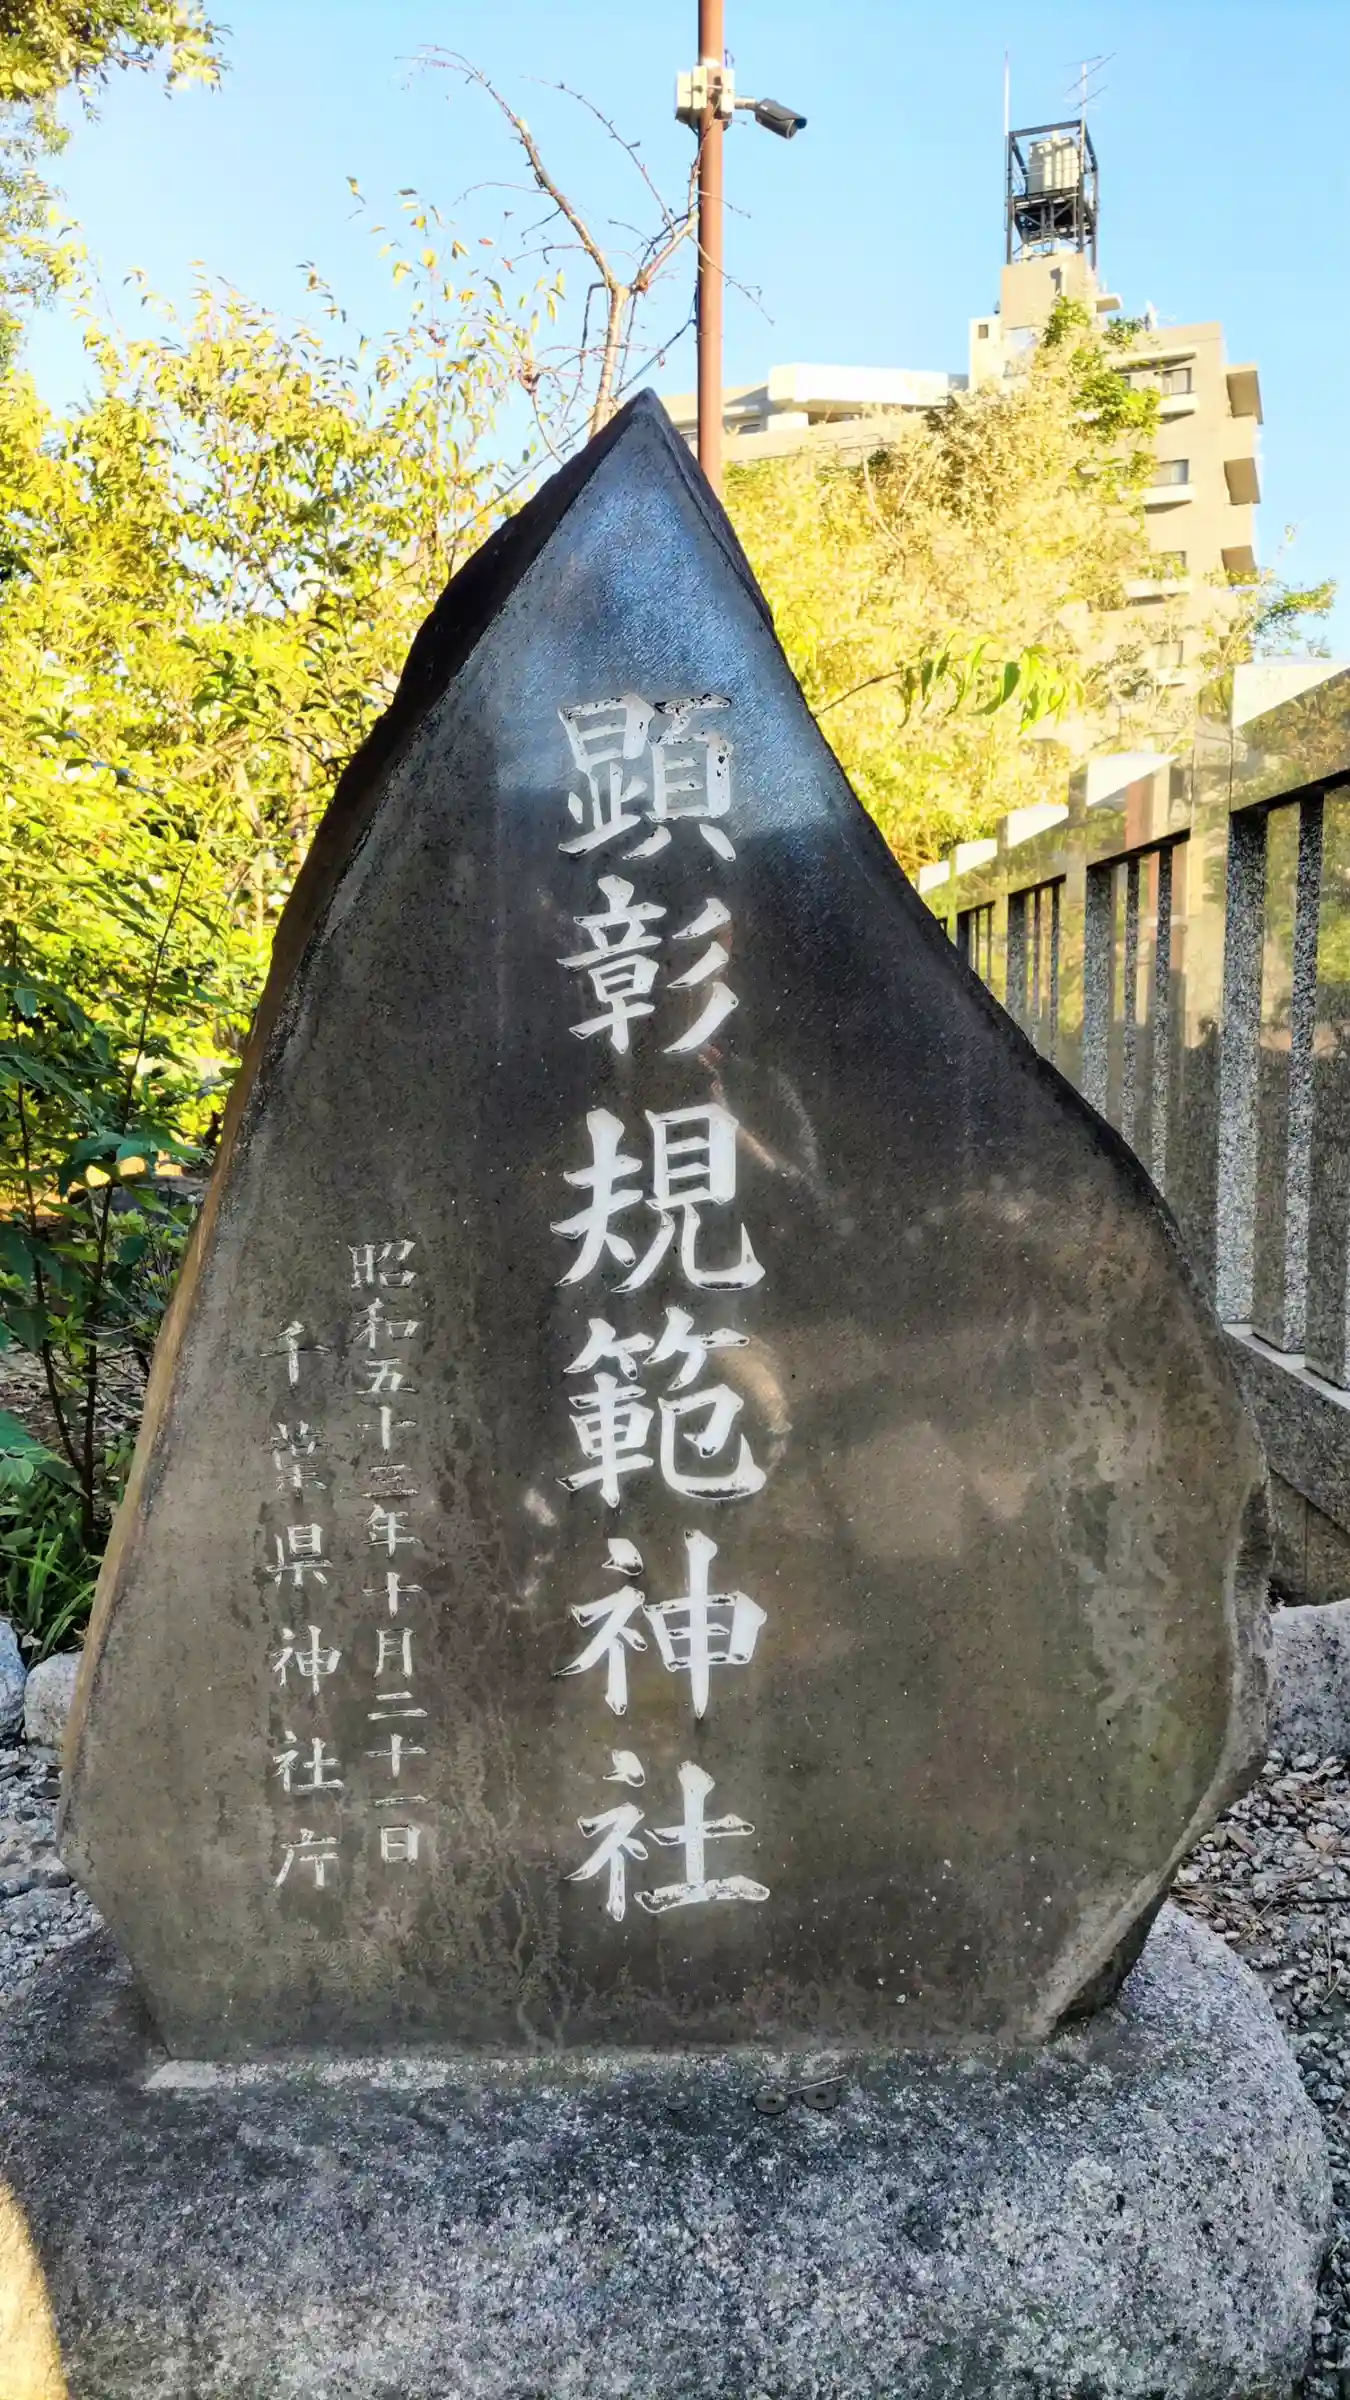 顕彰規範神社
昭和五十三年十月二十一日
千葉県神社庁